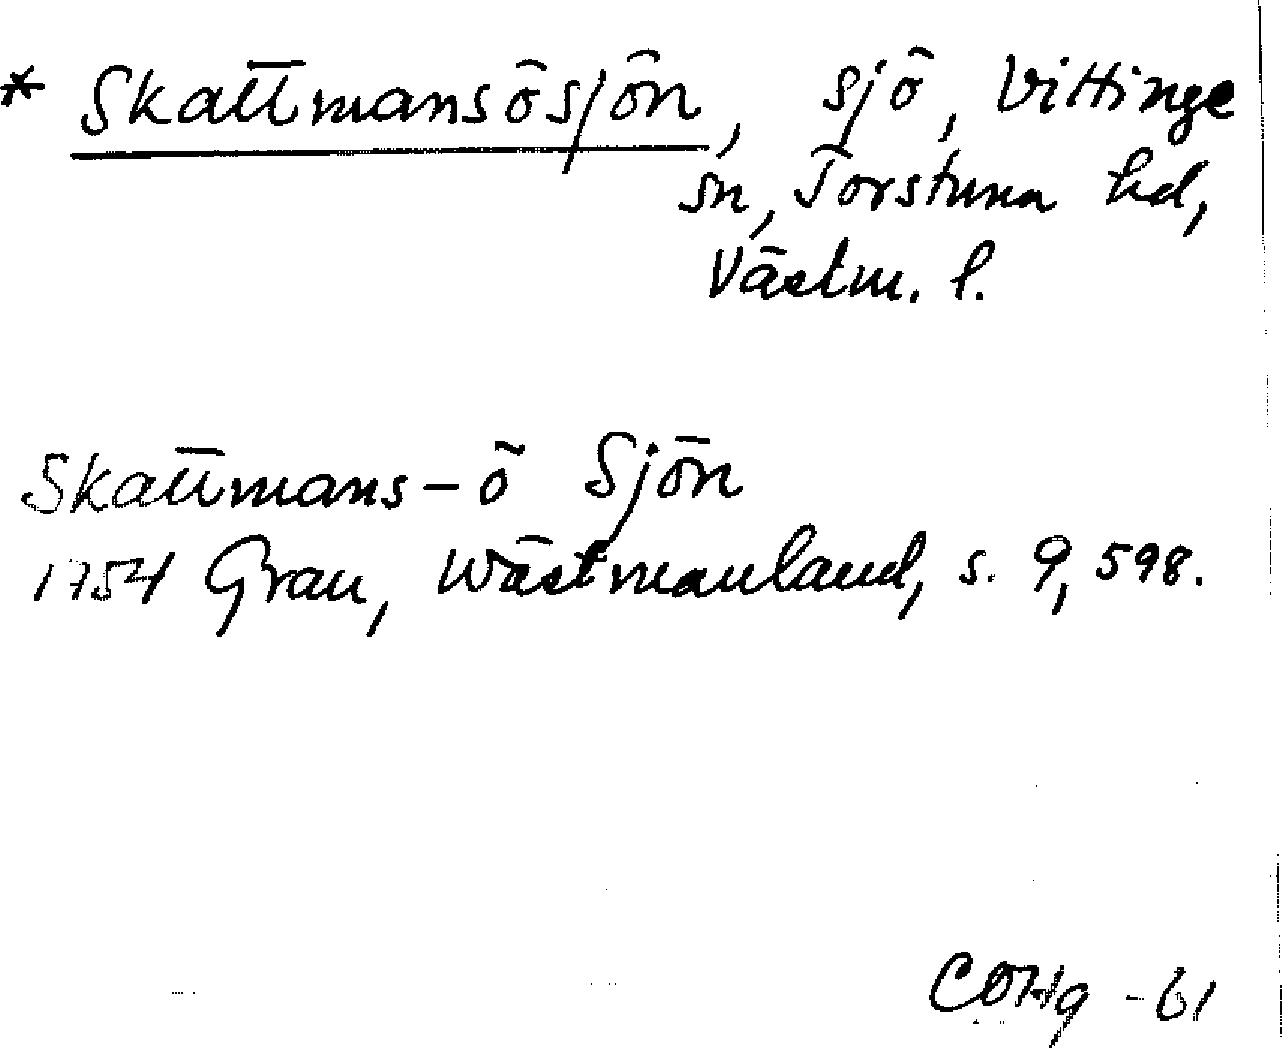 * Skattmansösjön, sjö, Vittinge
sn, Torstuna hd,
Västm. l.
Skattmans-ö Sjön
1754 Grau, Wästmanland, s. 9, 598.
COHg -61